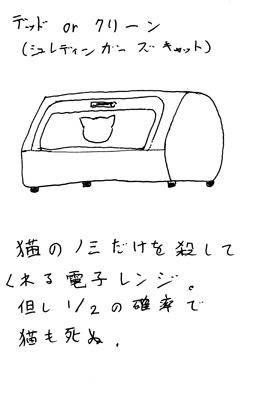 デッド or クリーン
(シュレディンガーズキャット)
猫のノミだけを殺して
くれる電子レンジ。
但し1/2の確率で
猫も死ぬ.